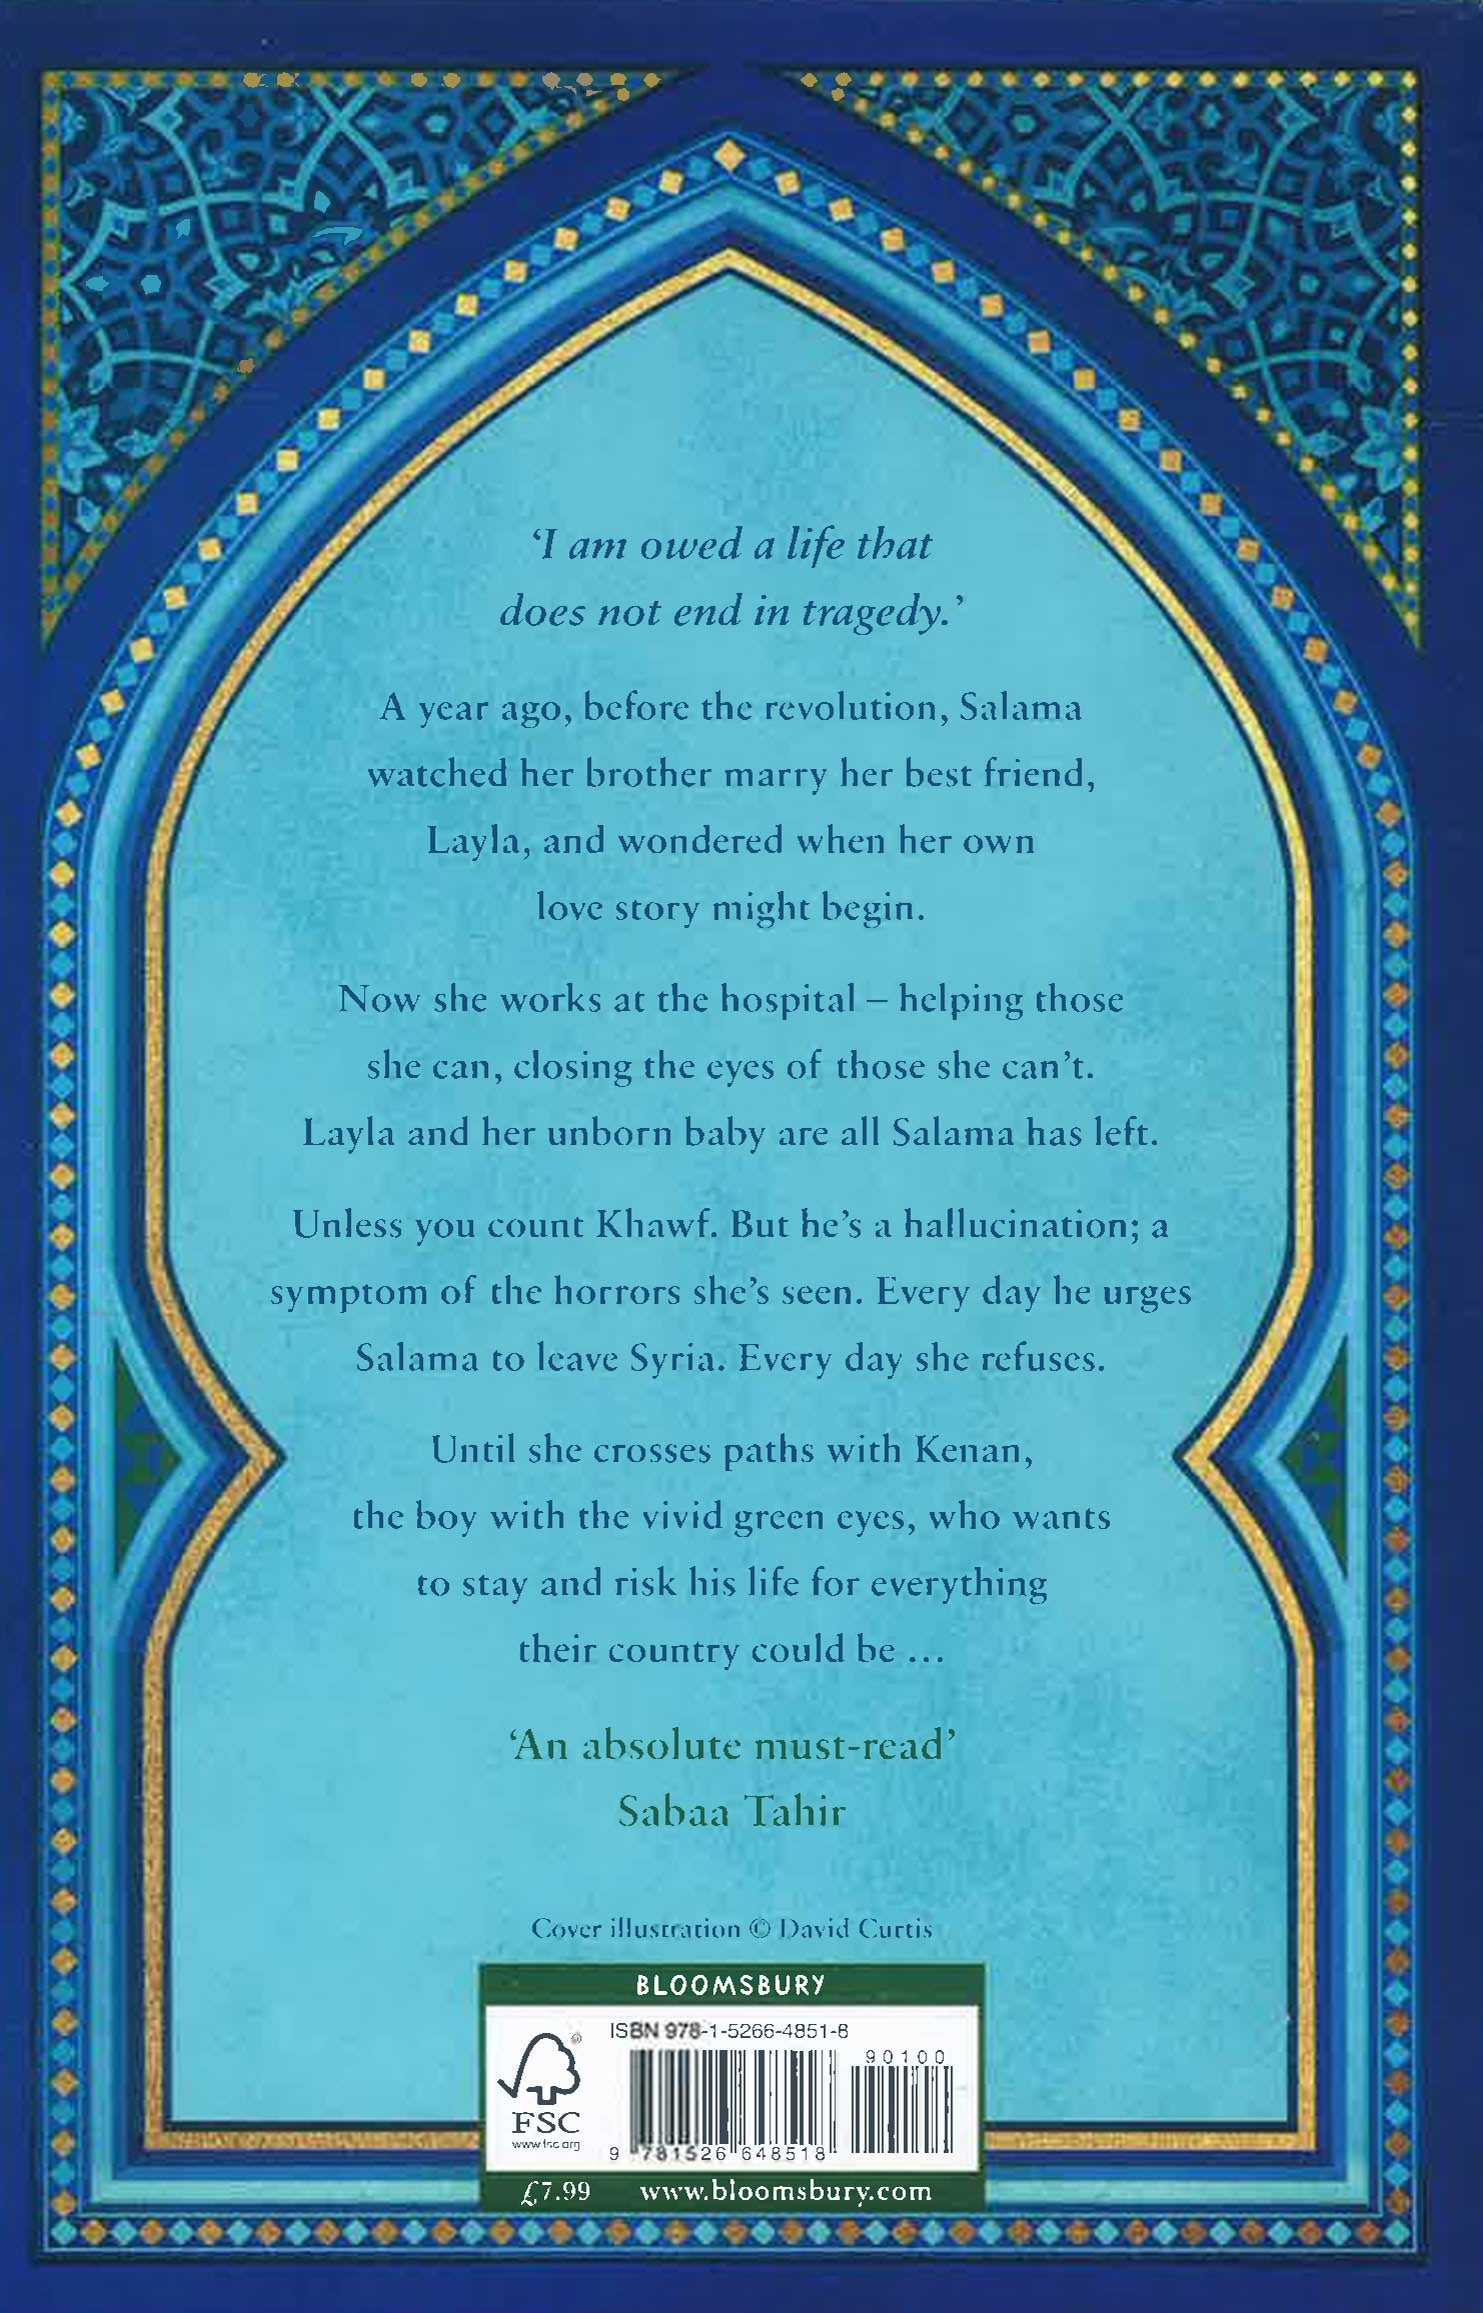 ‘I am owed a life that
does not end in tragedy.’
A year ago, before the revolution, Salama
watched her brother marry her best friend,
Layla, and wondered when her own
love story might begin.
Now she works at the hospital – helping those
she can, closing the eyes of those she can’t.
Layla and her unborn baby are all Salama has left.
Unless you count Khawf. But he’s a hallucination; a
symptom of the horrors she’s seen. Every day he urges
Salama to leave Syria. Every day she refuses.
Until she crosses paths with Kenan,
the boy with the vivid green eyes, who wants
to stay and risk his life for everything
their country could be ...
‘An absolute must-read’
Sabaa Tahir
Cover illustration © David Curtis
BLOOMSBURY
ISBN 978-1-5266-4851-8
90100
®
FSC
www.fsc.org
9 781526 648518
£7.99 www.bloomsbury.com